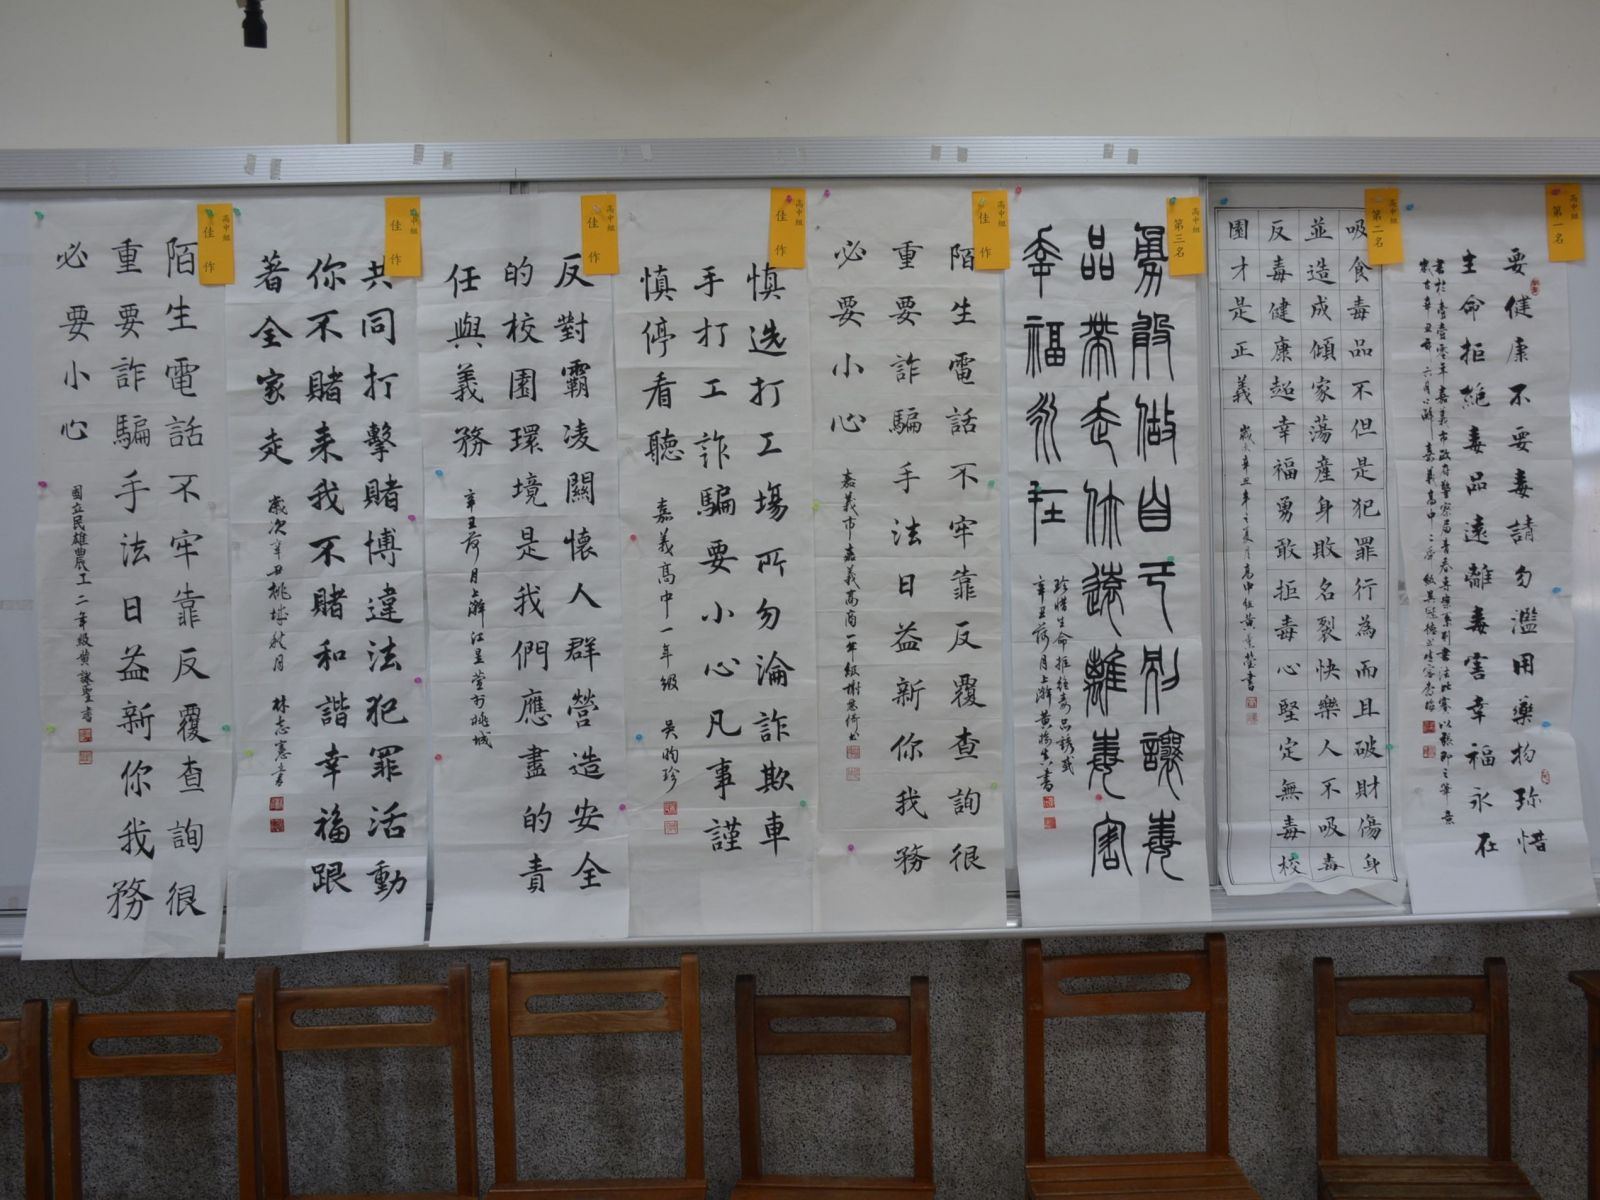 高中組
第一名
要健康不要毒請勿濫用藥物珍惜
生命拒絕毒品遠離毒害幸福永在
高中組
第二名
吸食毒品不但是犯罪行為而且破財傷身
並造成傾家蕩產身敗名裂快樂人不吸毒
反毒健康起幸福勇敢拒毒心堅定無毒校
園才是正義
高中組
第三名
勇敢做自己別讓毒
品帶走你遠離毒害
幸福永在
珍惜生命拒絕毒品誘惑
高中組
佳作
陌生電話不牢靠反覆查詢很
重要詐騙手法日益新你我務
必要小心
高中組
佳作
慎选打工場所勿淪詐欺車
手打工詐騙要小心凡事謹
慎停看聽
嘉義高中一年級 吳昀珍
高中組
佳作
反對霸凌關懷人群營造安全
的校園環境是我們應盡的責
任與義務
高中組
佳作
共同打擊賭博違法犯罪活動
你不賭来我不賭和諧幸福跟
著全家走
歲次辛丑桃城秋月 林志憲書
高中組
佳作
陌生電話不牢靠反覆查詢很
重要詐騙手法日益新你我務
必要小心
國立民雄農工二年級黃詠聖書